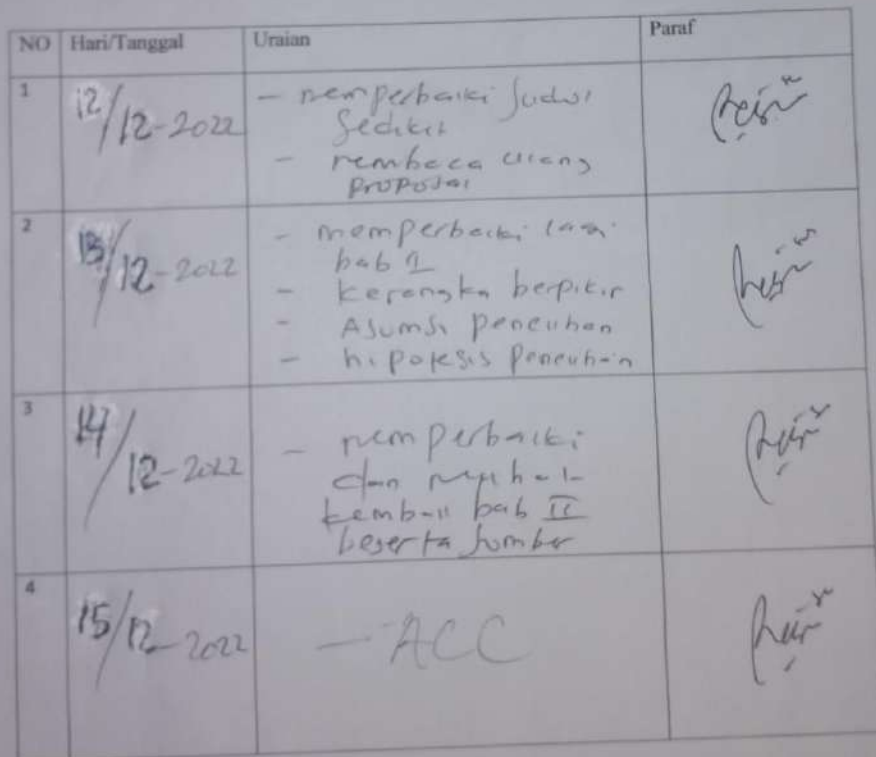 NO Hari/Tanggal Uraian Paraf
1 12/12-2022 - memperbaiki judul
sedikit
- membaca ulang
proposal
2 13/12-2022 - memperbaiki lagi
bab 1
- kerangka berpikir
- Asumsi penelitian
- hipotesis penelitian
3 14/12-2022 - memperbaiki
dan
kembali bab II
beserta sumber
4 15/12-2022 - ACC